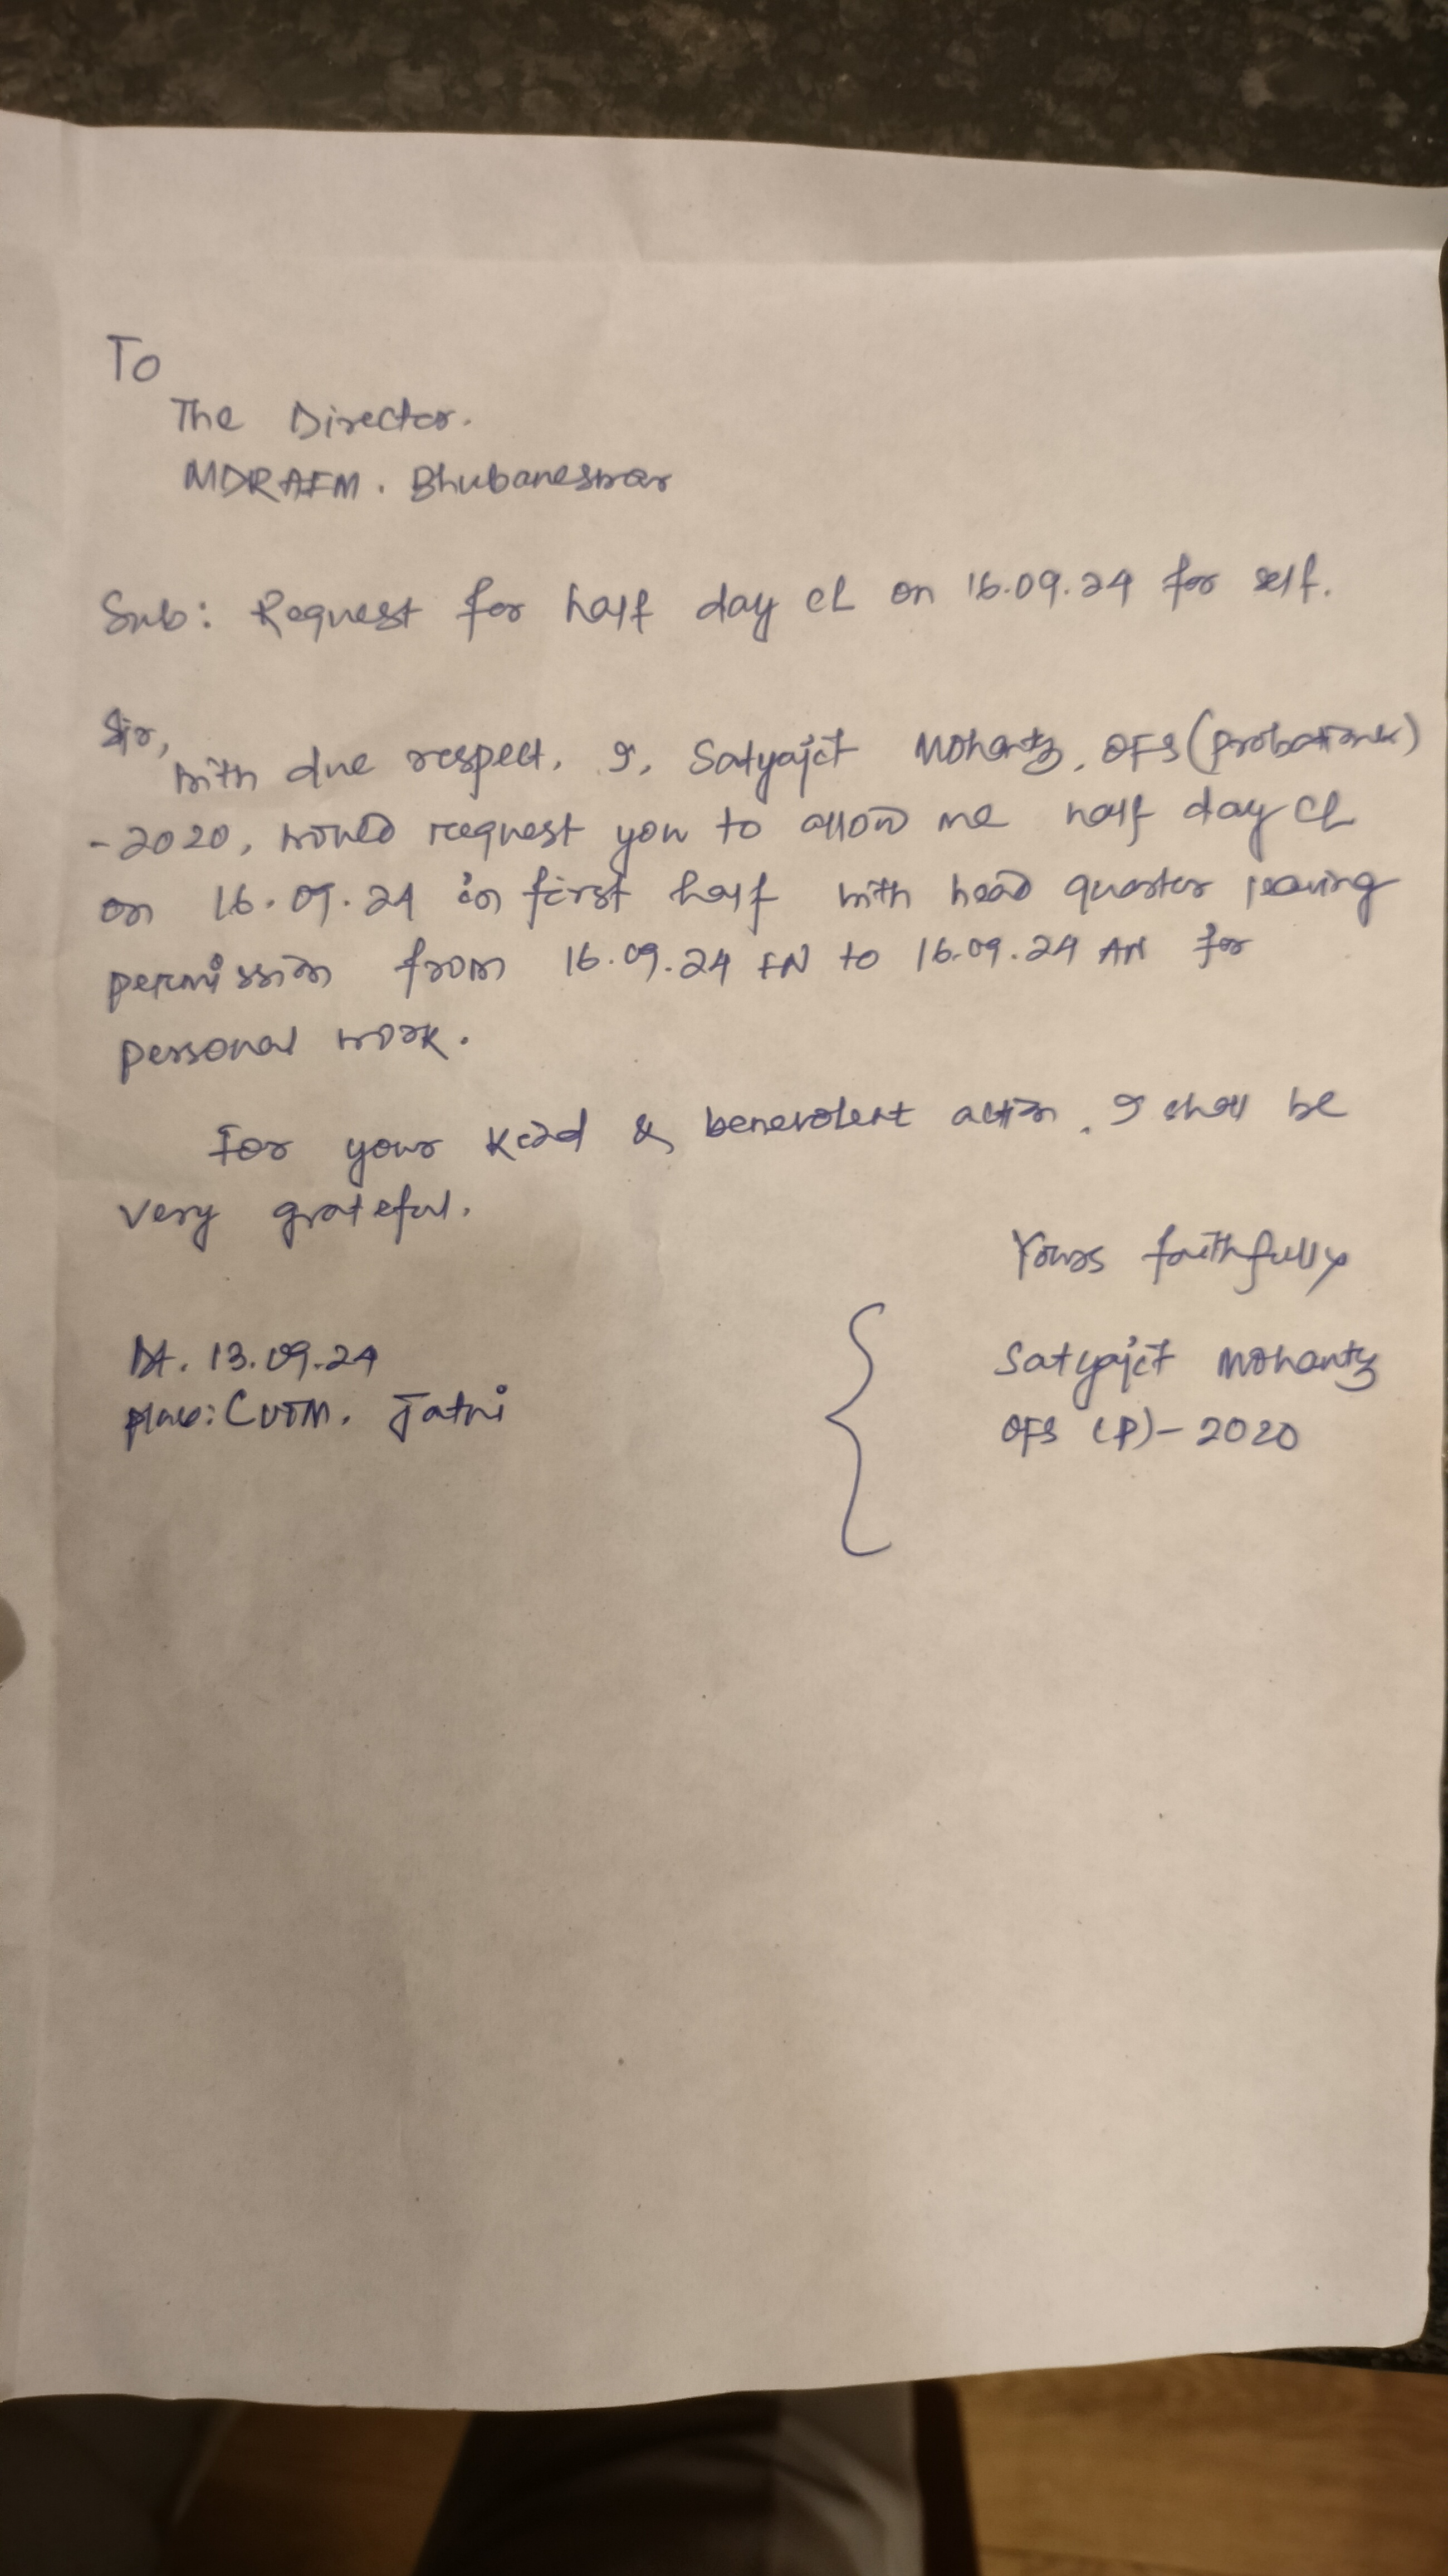 To
The Director.
MDRAFM. Bhubaneswar
Sub: Request for half day CL on 16.09.24 for self.
Sir,
with due respect, I, Satyajit Mohanty, OFS (Probationer)
-2020, would request you to allow me half day CL
on 16.09.24 in first half with head quarter leaving
permission from 16.09.24 FN to 16.09.24 AN for
personal work.
For your kind & benevolent action, I shall be
very grateful.
Yours faithfully
Satyajit Mohanty
OFS (P)-2020
Dt. 13.09.24
place: CUTM, Jatni